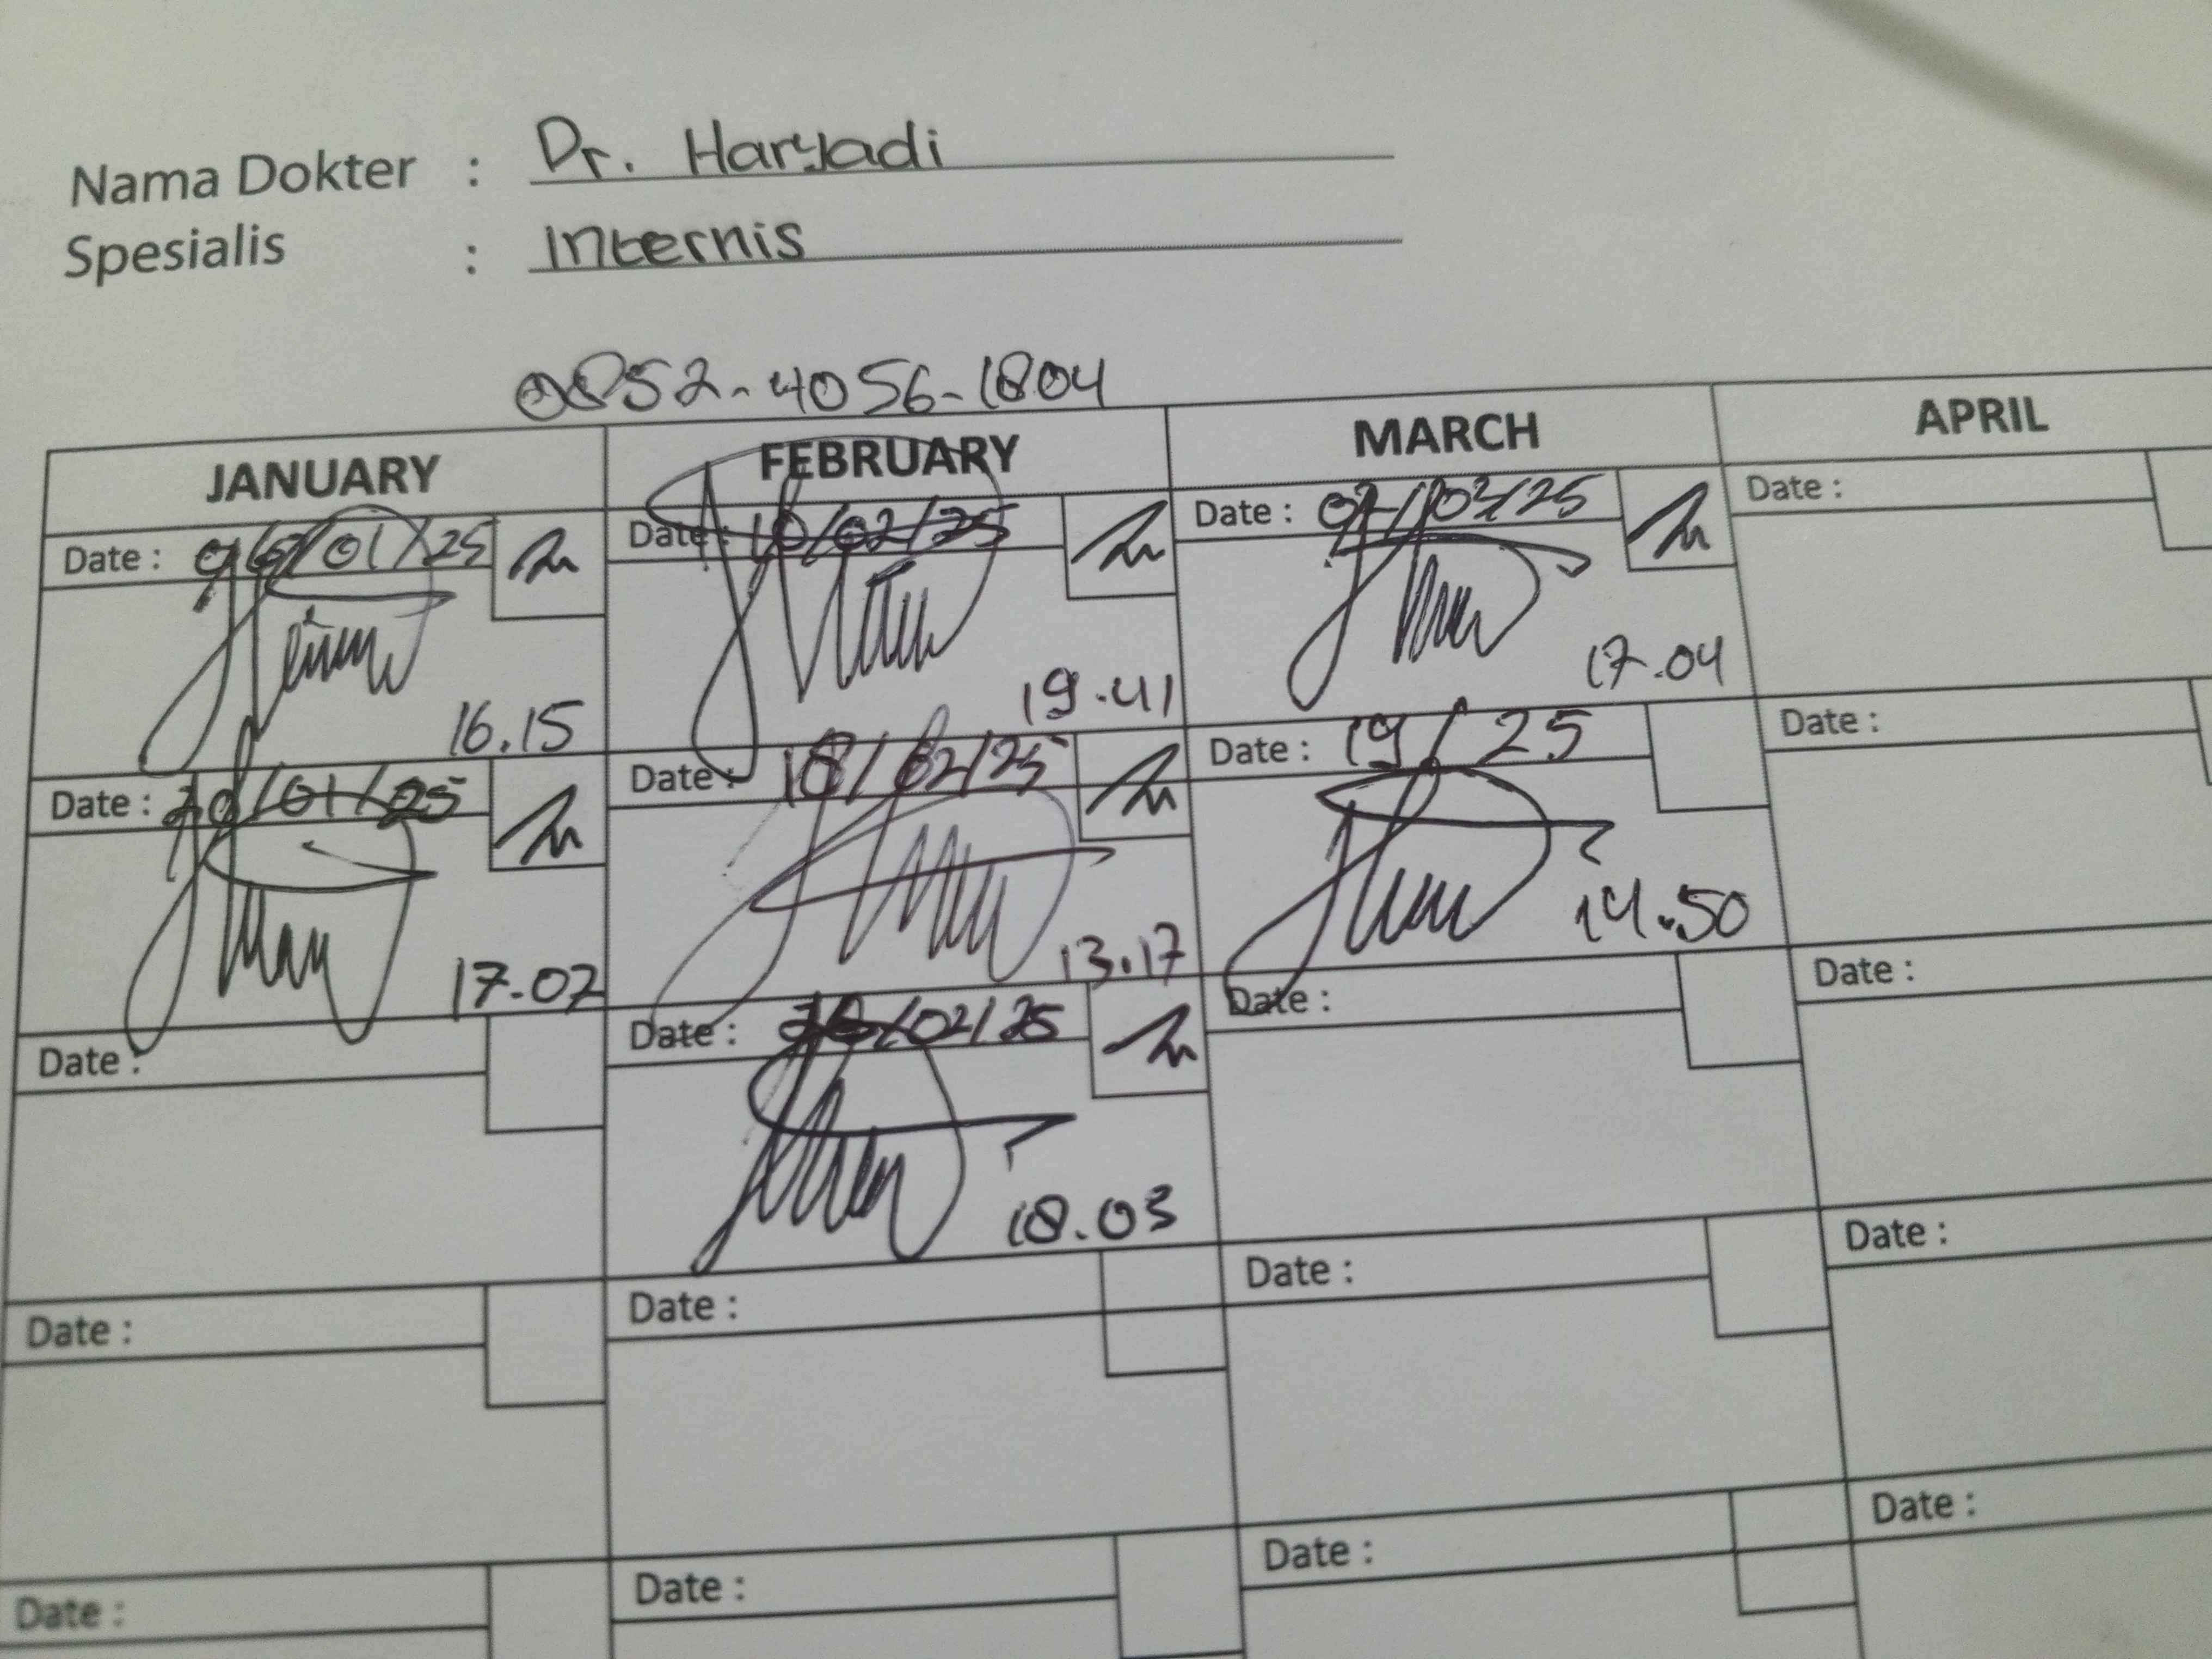 Nama Dokter : Dr. Haryadi
Spesialis : Internis
0852-4056-1804
JANUARY FEBRUARY MARCH APRIL
Date : /01/25 Date : 10/02/25 Date : /03/25 Date :
16.15 19.41 17.04
Date : /01/25 Date : 18/02/25 Date : 19/ 25 Date :
17.07 13.17 14.50
Date : Date : /02/25 Date : Date :
18.03
Date : Date : Date : Date :
Date : Date : Date : Date :